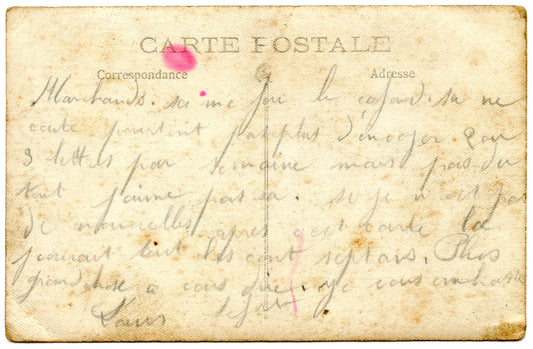 CARTE POSTALE
Correspondance Adresse
Marchands. sa me fou le cafard. sa ne
coute pourtant pas plus d'envoyer 2 ou
3 lettres par semaine mais pas du
tout j'aime pas sa. si je n'est pas
de nouvelles après cest carte la
pourait tout les cent sept ans. Plus
grand chose a vous que je vous embrasse
Louis